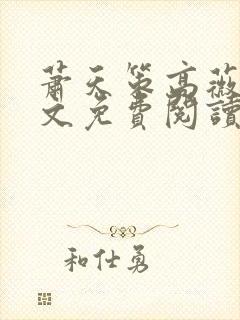 萧天策高薇
文免費閱讀
和仕勇